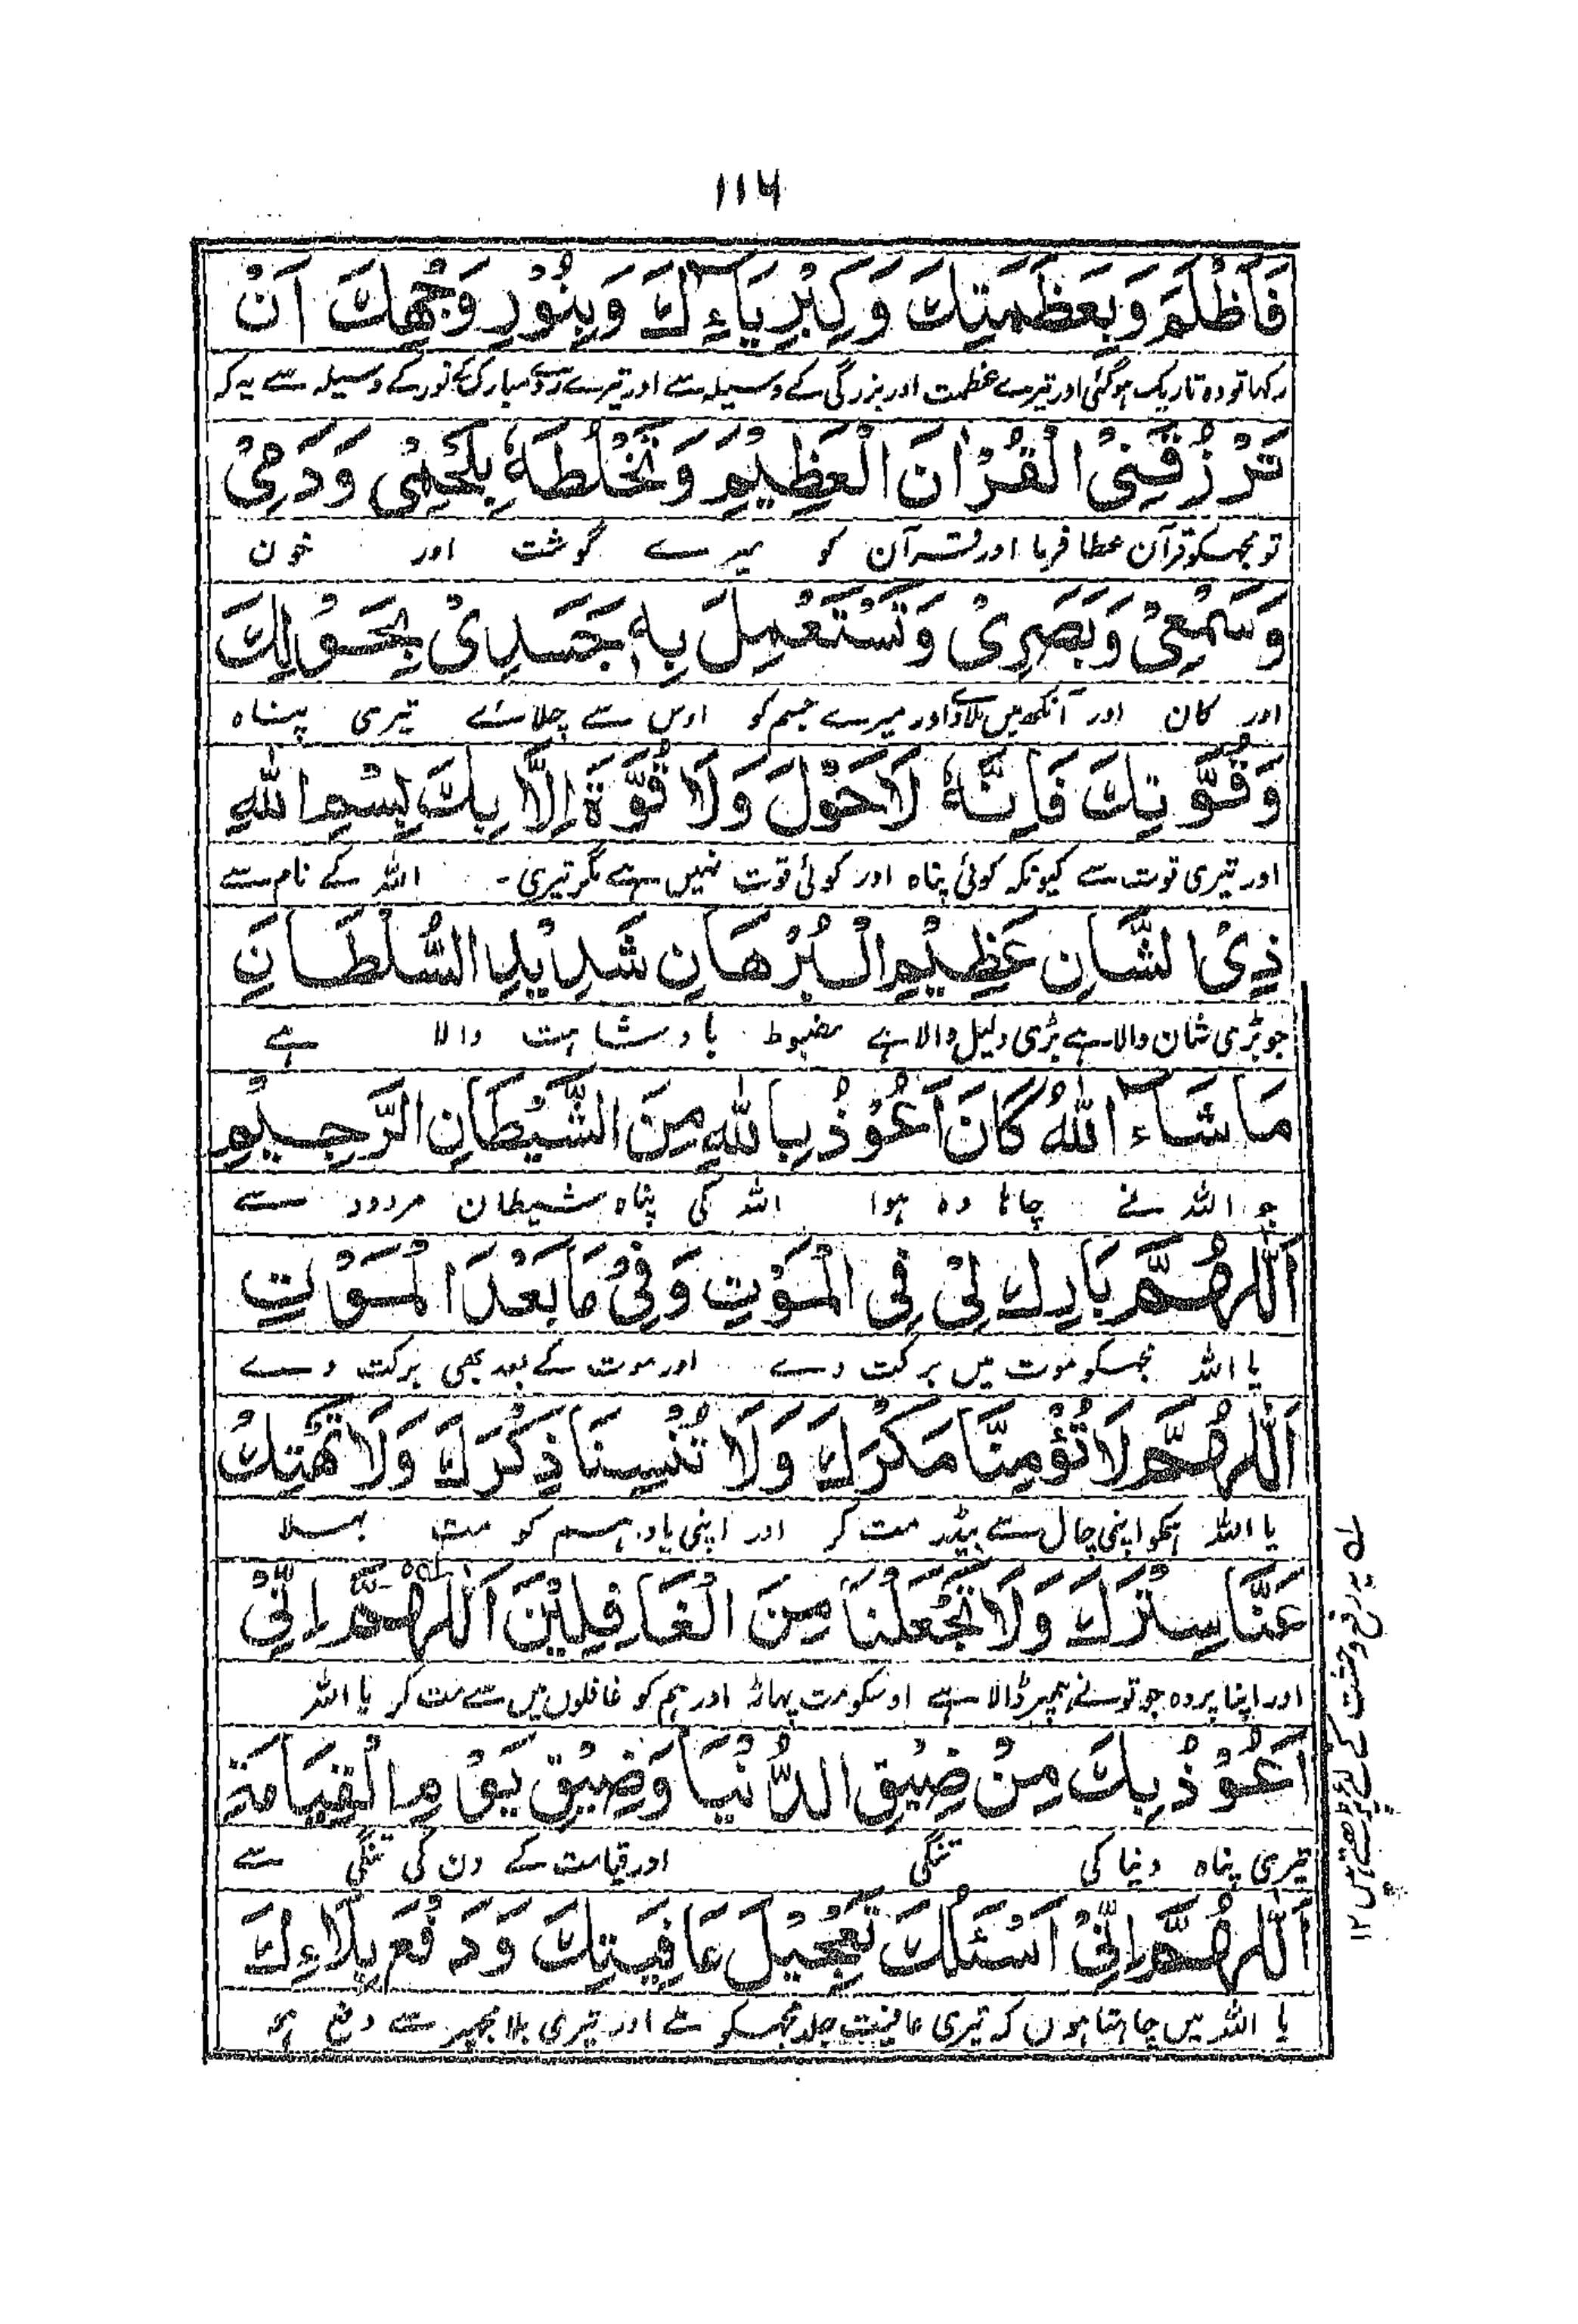 ۱۱۶
فَاَظْلَمَ وَبِعَظَمَتِكَ وَكِبْرِيَآءِكَ وَبِنُوْرِ وَجْهِكَ اَنْ
رکھا تو وہ تاریک ہوگئی اور تیرے عظمت اور بزرگی کے وسیلہ سے اور تیرے روے مبارک کے نور کے وسیلہ سے یہ کہ
تَرْزُقَنِىَ الْقُرْاٰنَ الْعَظِيْمَ وَتَخْلُطَهٗ بِلَحْمِىْ وَدَمِىْ
تو مجھکو قرآن عطا فرما اور قرآن کو میرے گوشت اور خون
وَسَمْعِىْ وَبَصَرِىْ وَتَسْتَعْمِلَ بِهٖ جَسَدِىْ بِحَوْلِكَ
اور کان اور آنکھ میں ملادے اور میرے جسم کو اوس سے چلائے تیری پناہ
وَقُوَّتِكَ فَاِنَّهٗ لَاحَوْلَ وَلَا قُوَّةَ اِلَّا بِكَ بِسْمِ اللّٰهِ
اور تیری قوت سے کیونکہ کوئی پناہ اور کوئی قوت نہیں ہے مگر تیری ۔ اللہ کے نام سے
ذِى الشَّانِ عَظِيْمِ الْبُرْهَانِ شَدِيْدِ السُّلْطَانِ
جو بڑی شان والا ہے بڑی دلیل والا ہے مضبوط بادشاہت والا ہے
مَاشَآءَ اللّٰهُ كَانَ اَعُوْذُ بِاللّٰهِ مِنَ الشَّيْطَانِ الرَّجِيْمِ
جو اللہ نے چاہا وہ ہوا اللہ کی پناہ شیطان مردود سے
اَللّٰهُمَّ بَارِكْ لِىْ فِى الْمَوْتِ وَفِىْ مَا بَعْدَ الْمَوْتِ
یا اللہ مجھکو موت میں برکت دے اور موت کے بعد بھی برکت دے
اَللّٰهُمَّ لَا تُؤْمِنَّا مَكْرَكَ وَلَا تُنْسِنَا ذِكْرَكَ وَلَا تَهْتِكْ
یا اللہ ہمکو اپنی چال سے نڈر مت کر اور اپنی یاد ہم کو مت بھلا
عَنَّا سِتْرَكَ وَلَا تَجْعَلْنَا مِنَ الْغَافِلِيْنَ اَللّٰهُمَّ اِنِّىْ
اور اپنا پردہ جو تونے ہمپر ڈالا ہے اوسکو مت پھاڑ اور ہم کو غافلوں میں سے مت کر یا اللہ
اَعُوْذُ بِكَ مِنْ ضِيْقِ الدُّنْيَا وَضِيْقِ يَوْمِ الْقِيَامَةِ
تیری پناہ دنیا کی تنگی اور قیامت کے دن کی تنگی سے
اَللّٰهُمَّ اِنِّىْ اَسْئَلُكَ تَعْجِيْلَ عَافِيَتِكَ وَدَفْعَ بَلَاءِكَ
یا اللہ میں چاہتا ہوں کہ تیری عافیت جلد مجھکو ملے اور تیری بلا مجھپر سے دفع ہو
لہ یہ رفع وحشت کے لیے پڑھتے ہیں ۱۲